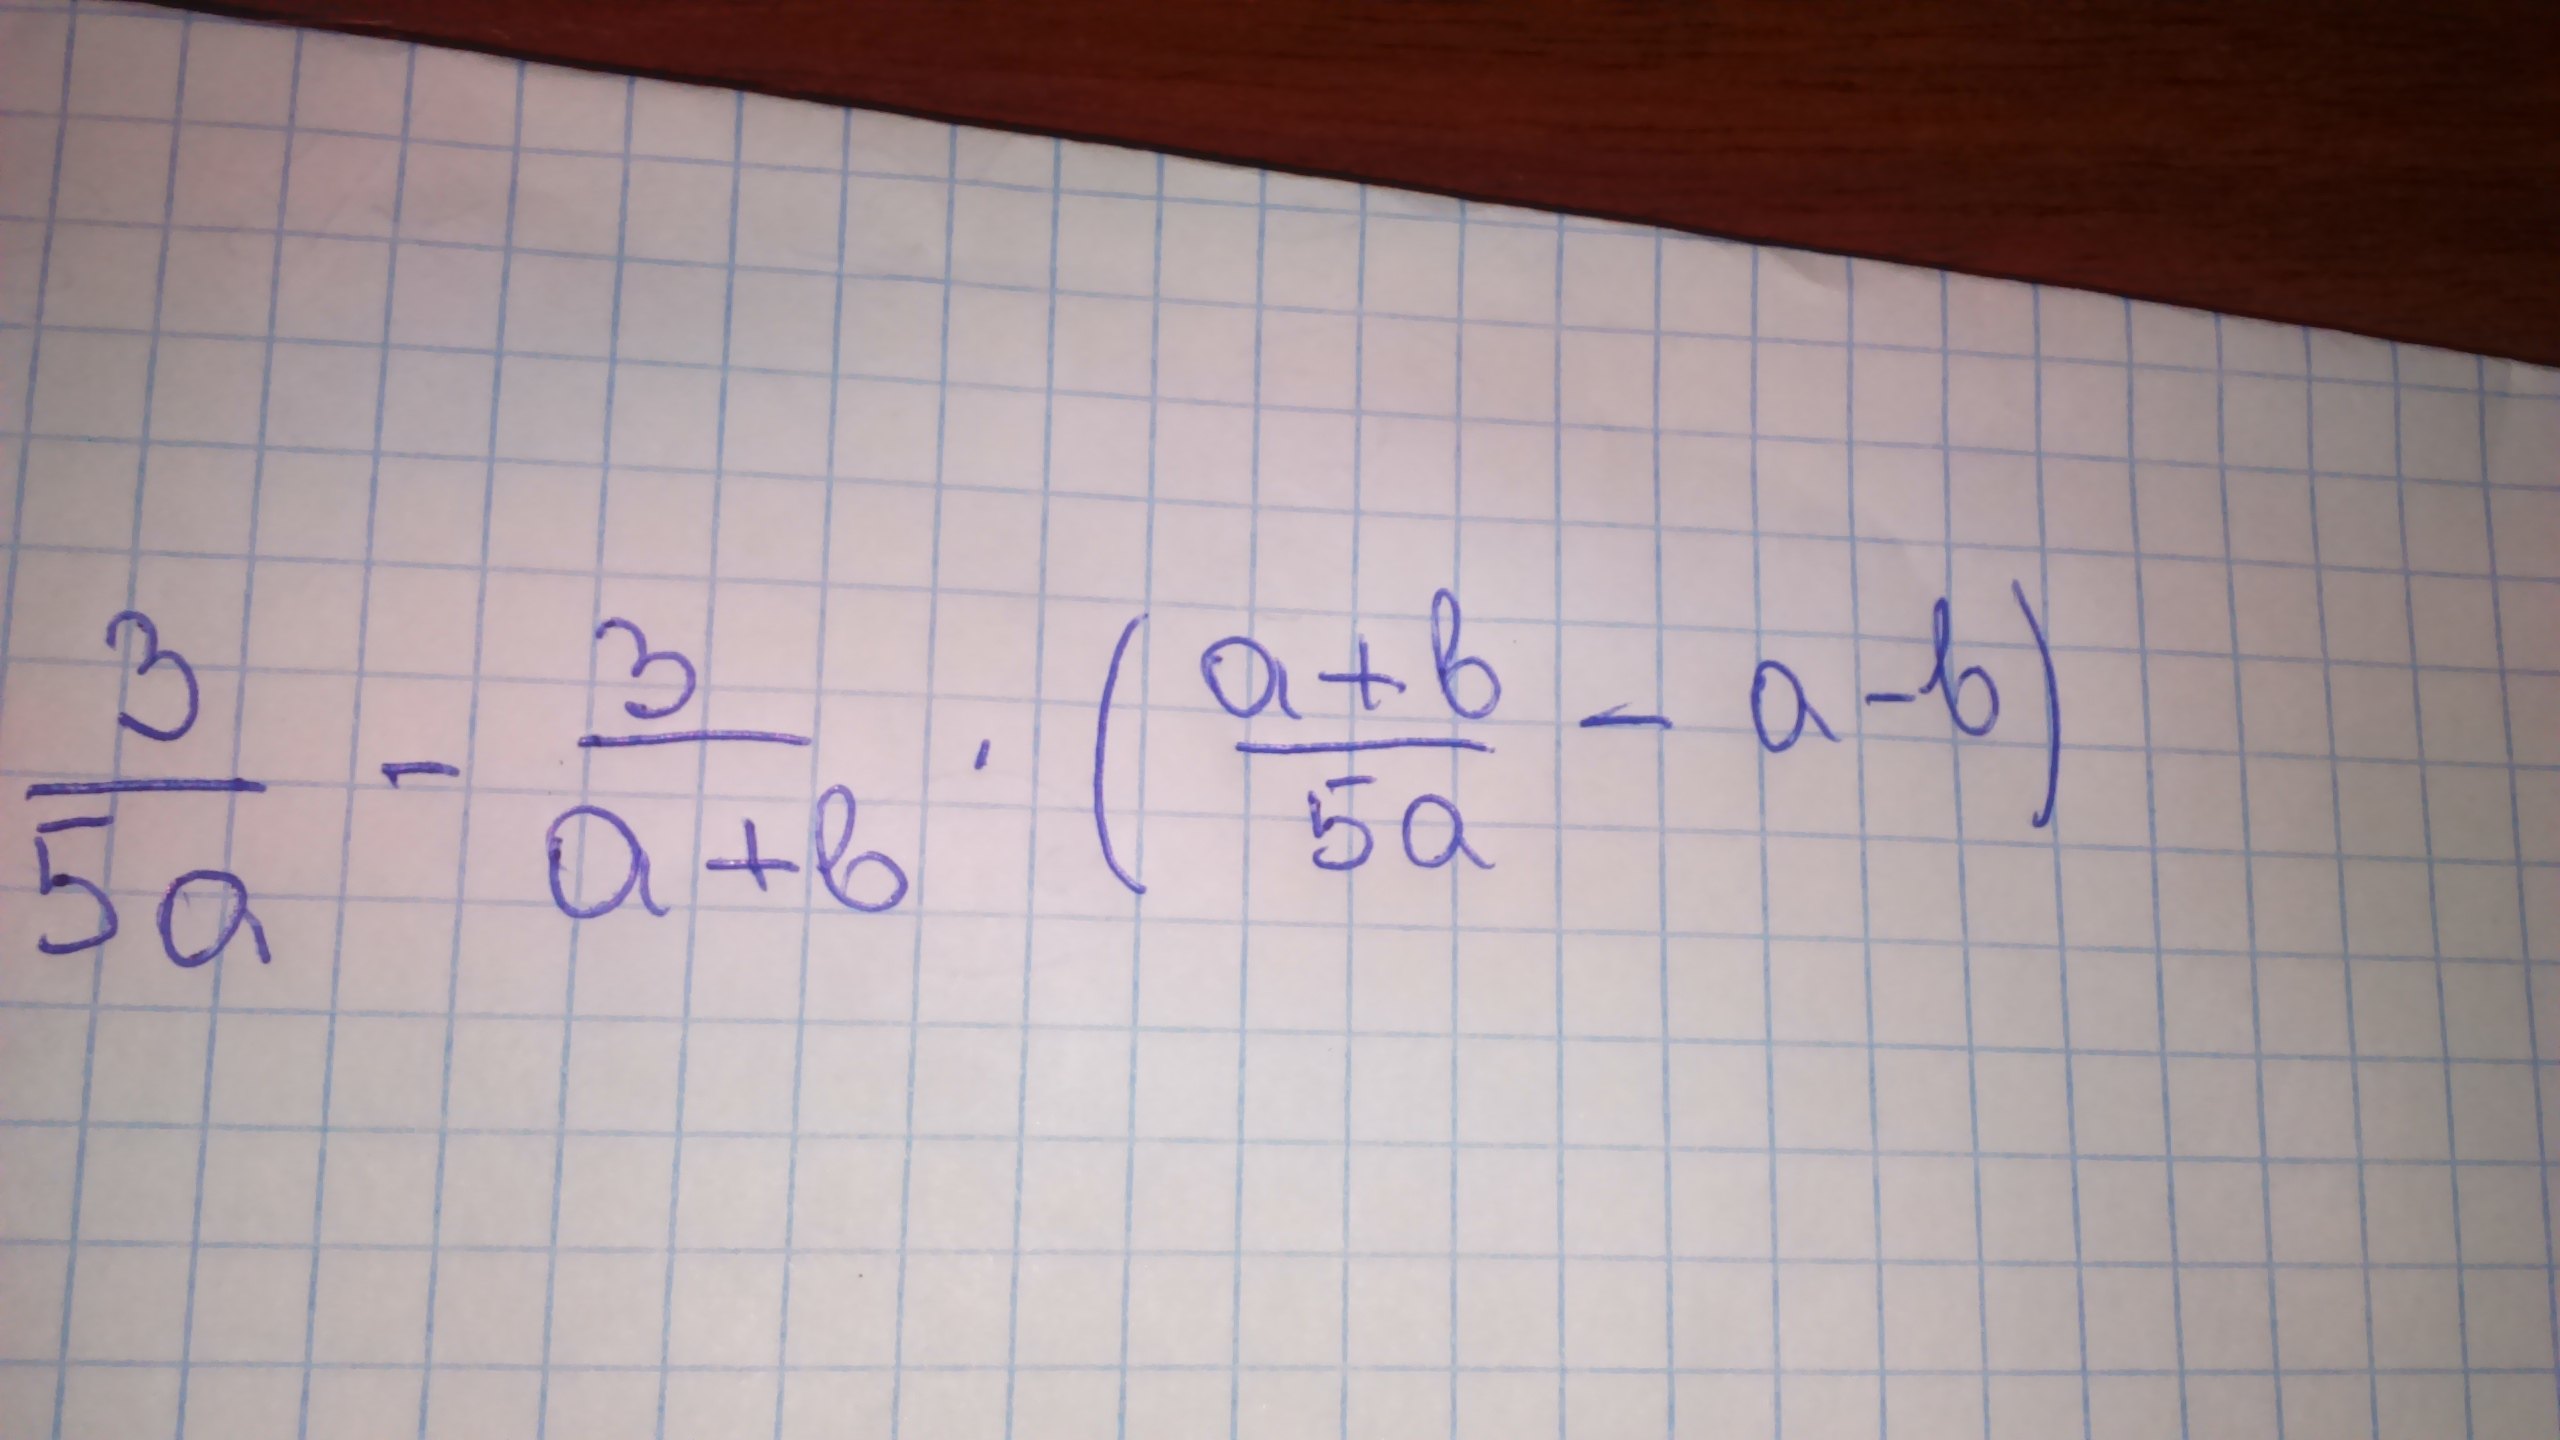 3/5a - 3/(a+b) · ((a+b)/5a - a-b)